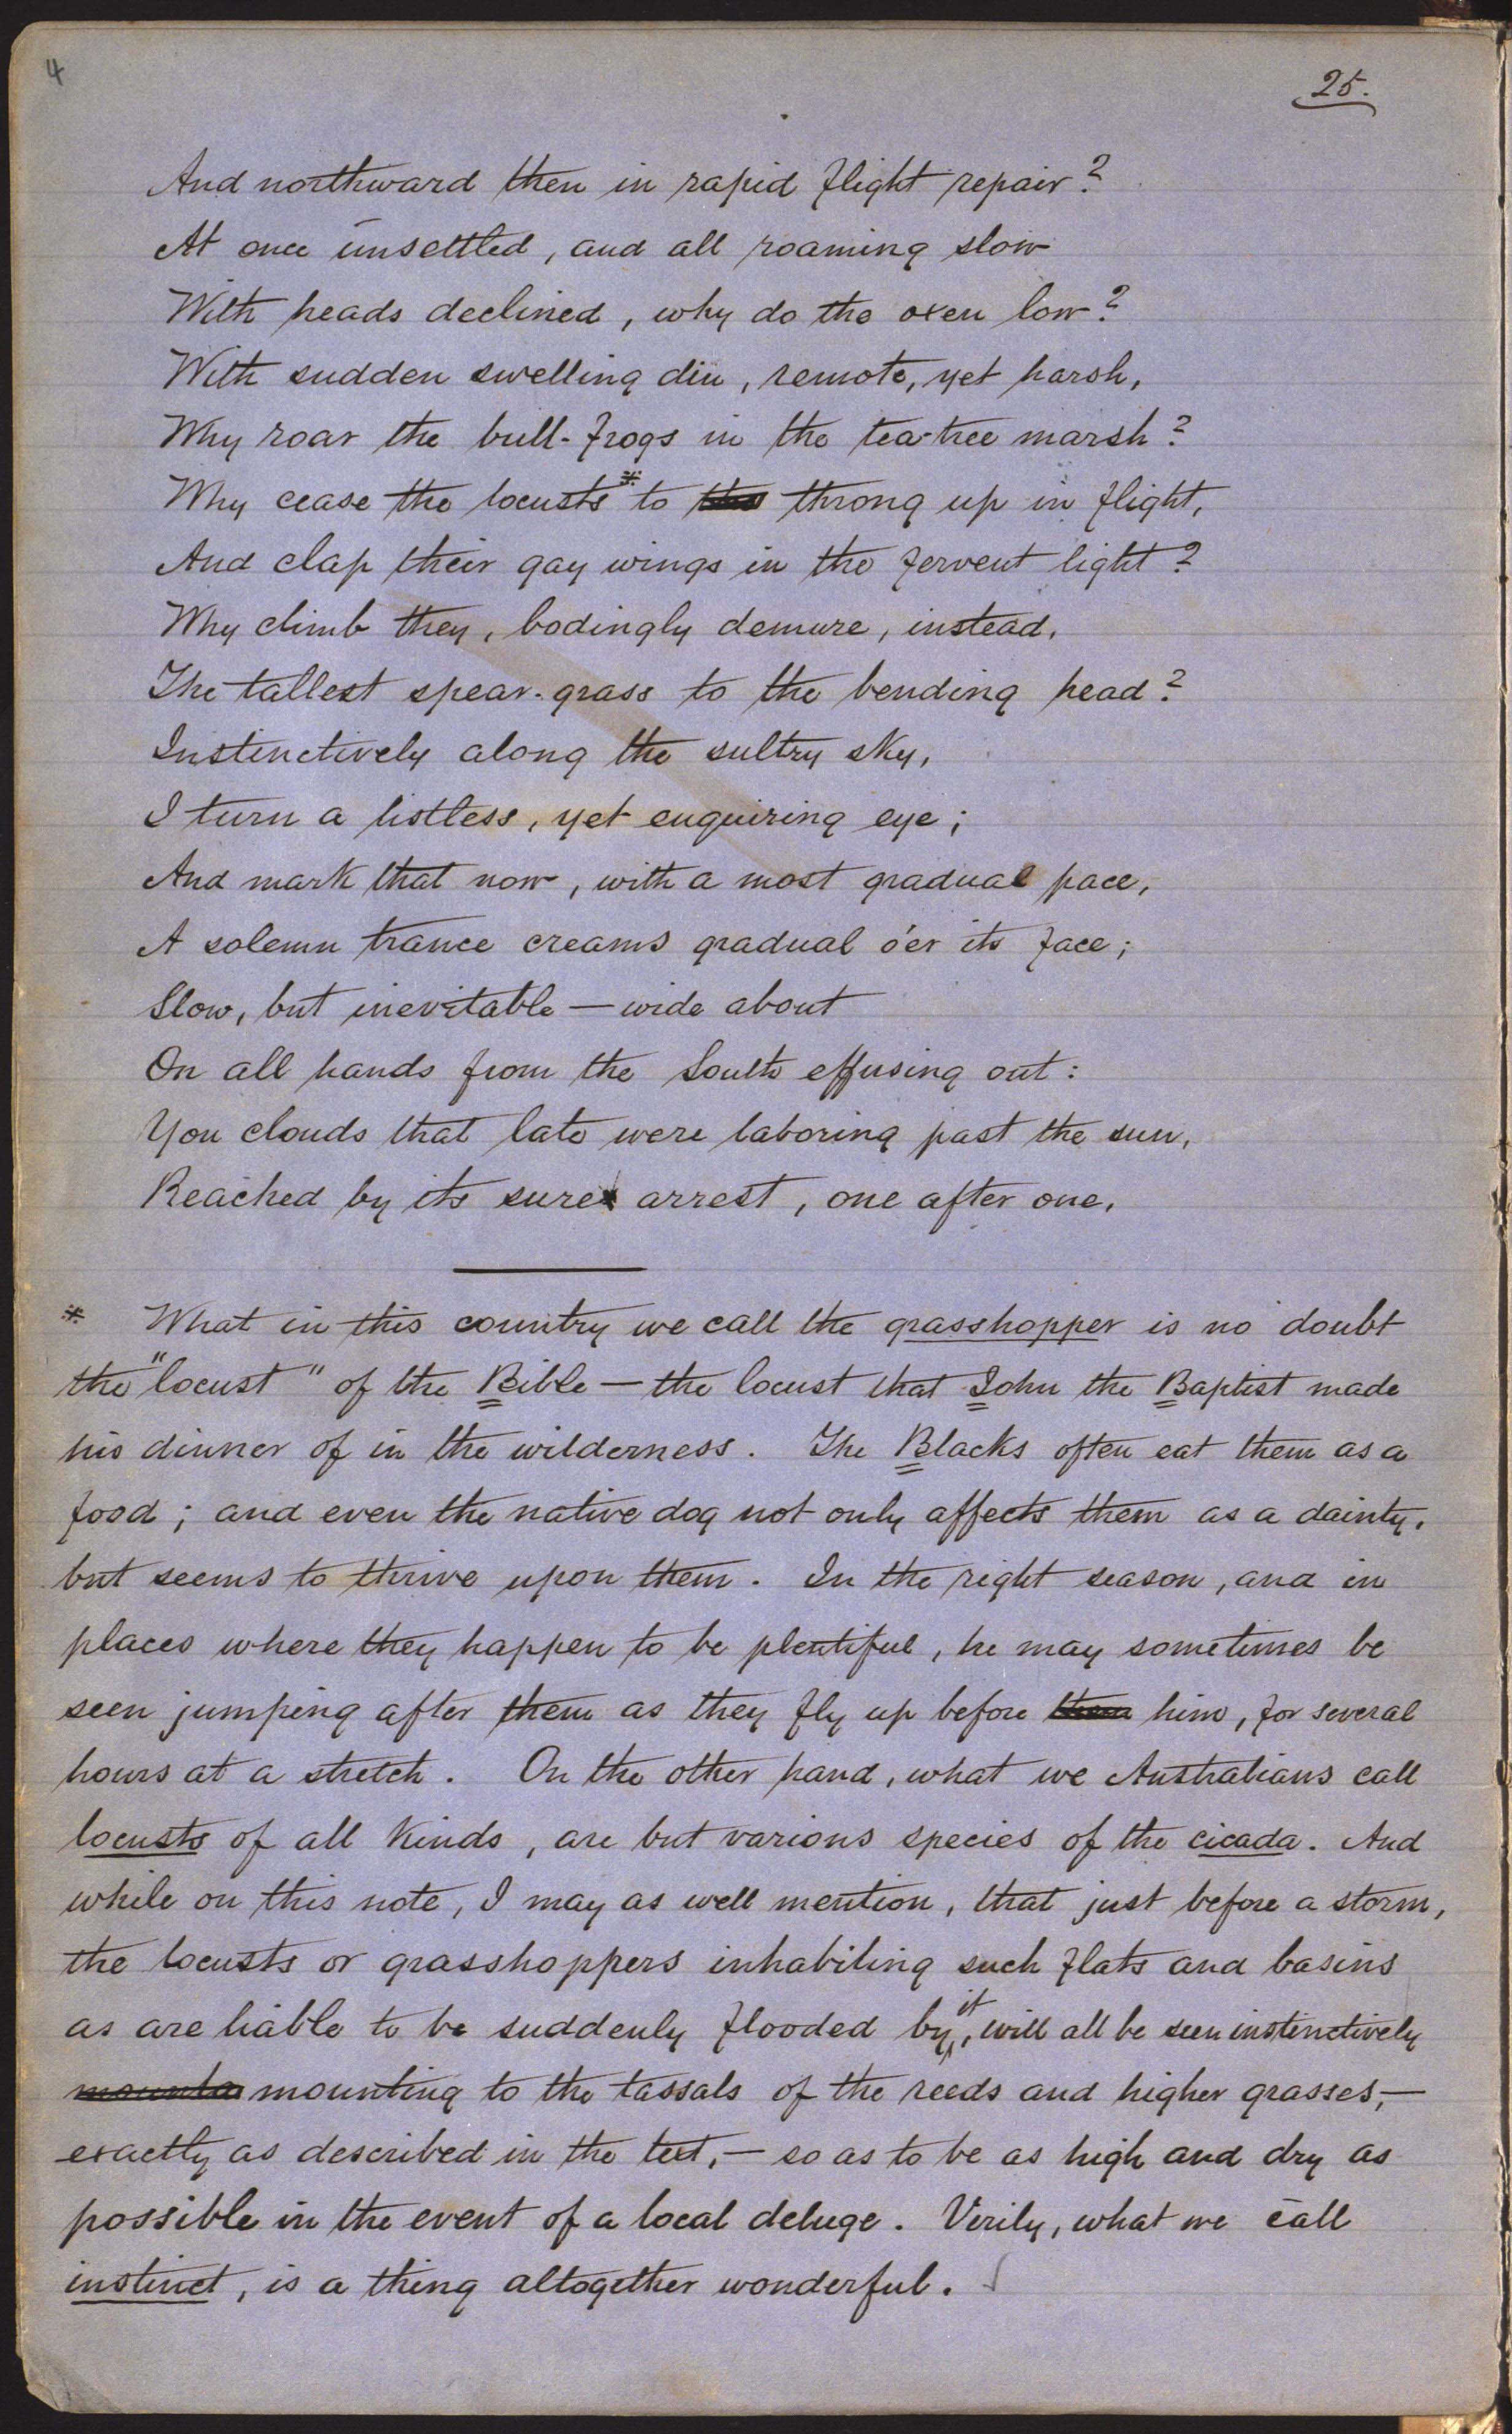 4
25.
And northward then in rapid flight repair?
At once unsettled, and all roaming slow
With heads declined, why do the oxen low?
With sudden swelling din, remote, yet harsh,
Why roar the bull-frogs in the tea-tree marsh?
Why cease the locusts* to throng up in flight,
And clap their gay wings in the fervent light?
Why climb they, bodingly demure, instead,
The tallest spear-grass to the bending head?
Instinctively along the sultry sky,
I turn a listless, yet enquiring eye;
And mark that now, with a most gradual pace,
A solemn trance creams gradual o'er its face;
Slow, but inevitable — wide about
On all hands from the South effusing out:
Yon clouds that late were laboring past the sun,
Reached by its sure arrest, one after one,
* What in this country we call the grasshopper is no doubt
the "locust" of the Bible — the locust that John the Baptist made
his dinner of in the wilderness. The Blacks often eat them as a
food; and even the native dog not only affects them as a dainty,
but seems to thrive upon them. In the right season, and in
places where they happen to be plentiful, he may sometimes be
seen jumping after them as they fly up before them him, for several
hours at a stretch. On the other hand, what we Australians call
locusts of all kinds, are but various species of the cicada. And
while on this note, I may as well mention, that just before a storm,
the locusts or grasshoppers inhabiting such flats and basins
as are liable to be suddenly flooded by it, will all be seen instinctively
mounting to the tassals of the reeds and higher grasses,—
exactly as described in the text,— so as to be as high and dry as
possible in the event of a local deluge. Verily, what we call
instinct, is a thing altogether wonderful.